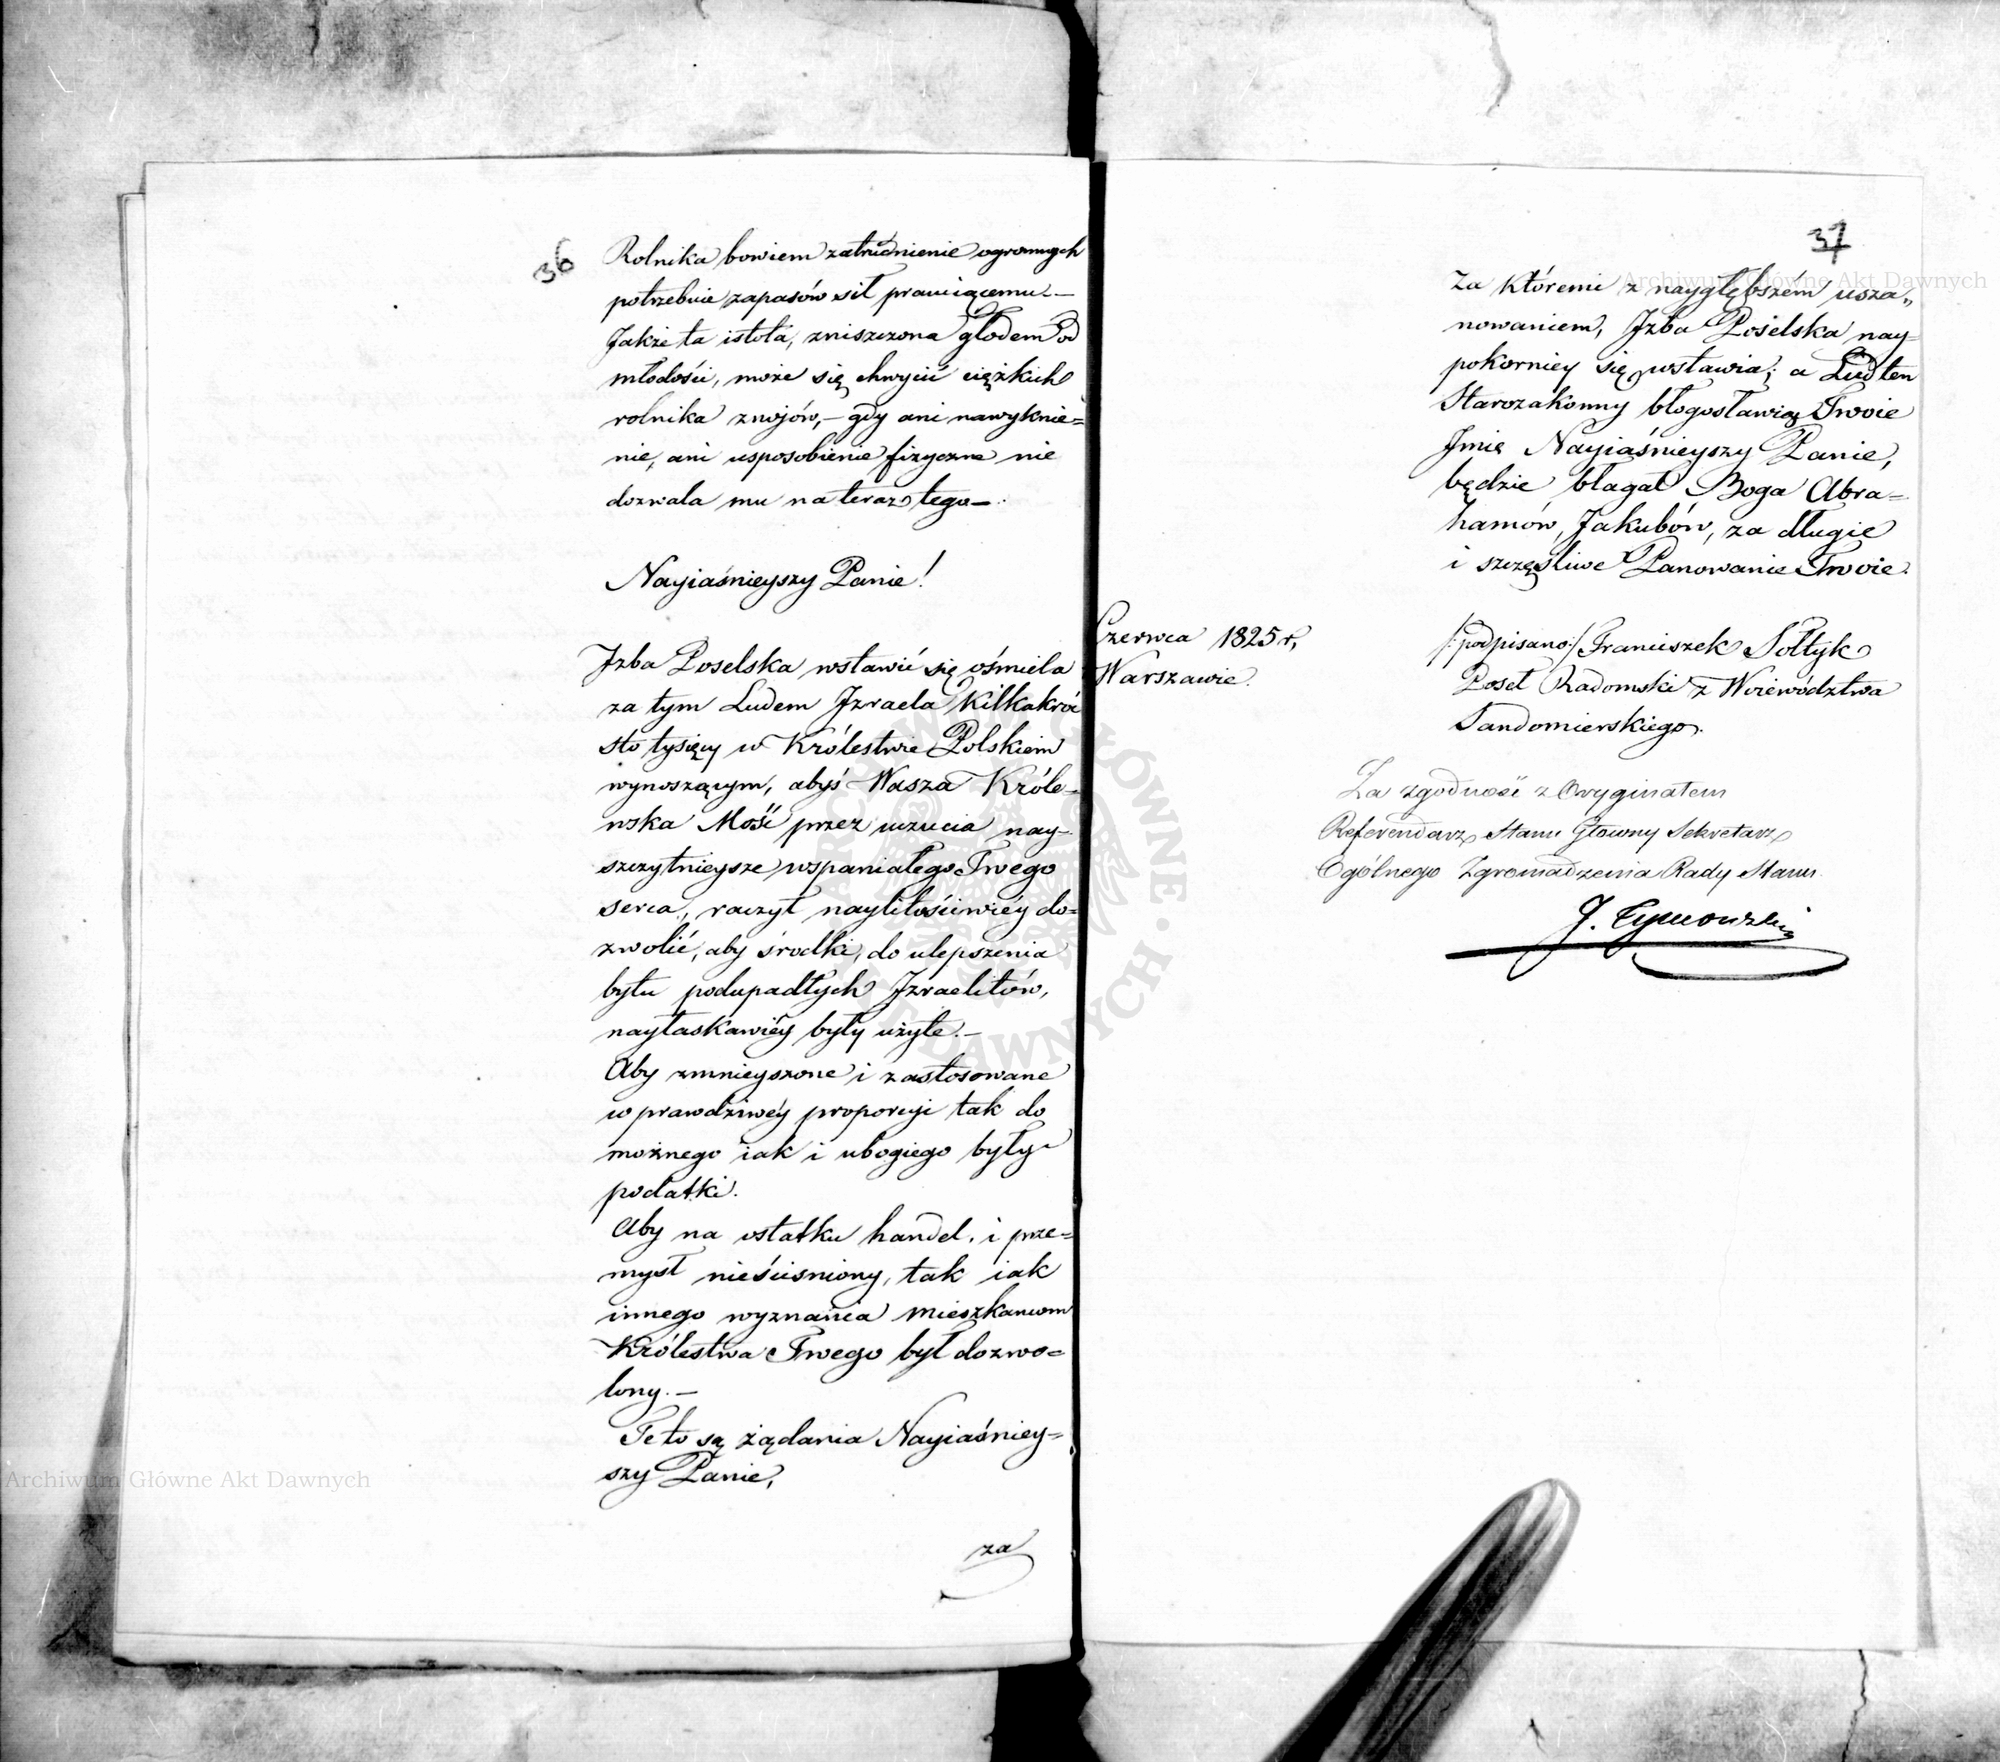 36
Rolnika bowiem zatrudnienie ogromnych
potrzebuie zapasów sił pracuiącemu. —
Jakże ta istota, zniszczona głodem od
młodości, może się chwycić ciężkich
rolnika znojów, — gdy ani nawyknie=
nie, ani usposobienie fizyczne nie
dozwala mu na teraz tego. —
Nayiaśnieyszy Panie!
Izba Poselska wstawić się ośmiela
za tym Ludem Izraela Kilkakroć
sto tysięcy w Królestwie Polskiem
wynoszącym, abyś Wasza Króle=
wska Mość przez uczucia nay=
szczytnieysze wspaniałego Twego
serca, raczył naylitościwiéy do=
zwolić, aby środki, do ulepszenia
bytu podupadłych Izraelitów,
nayłaskawiéy były użyte. —
Aby zmnieyszone i zastosowane
w prawdziwéy proporcyi tak do
możnego iak i ubogiego były
podatki.
Aby na ostatku handel i prze=
mysł nieściśniony, tak iak
innego wyznania mieszkańcom
Królestwa Twego był dozwo=
lony. —
Te to są żądania Nayiaśniey=
szy Panie,
za
37
za Któremi z naygłębszém usza„
nowaniem, Izba Poselska nay=
pokorniey się wstawia; a Lud ten
Starozakonny błogosławiąc Twoie
Imię Nayiaśnieyszy Panie,
będzie błagał Boga Abra=
hamów, Jakubów, za długie
i szczęśliwe Panowanie Twoie.
Czerwca 1825 r,
Warszawie.
/:podpisano:/ Franciszek Sołtyk
Poseł Radomski z Woiewództwa
Sandomierskiego.
Za zgodność z Oryginałem
Referendarz Stanu Główny Sekretarz
Ogólnego Zgromadzenia Rady Stanu
J. Tymowski
Archiwum Główne Akt Dawnych
Archiwum Główne Akt Dawnych
ARCHIWUM GŁÓWNE AKT DAWNYCH